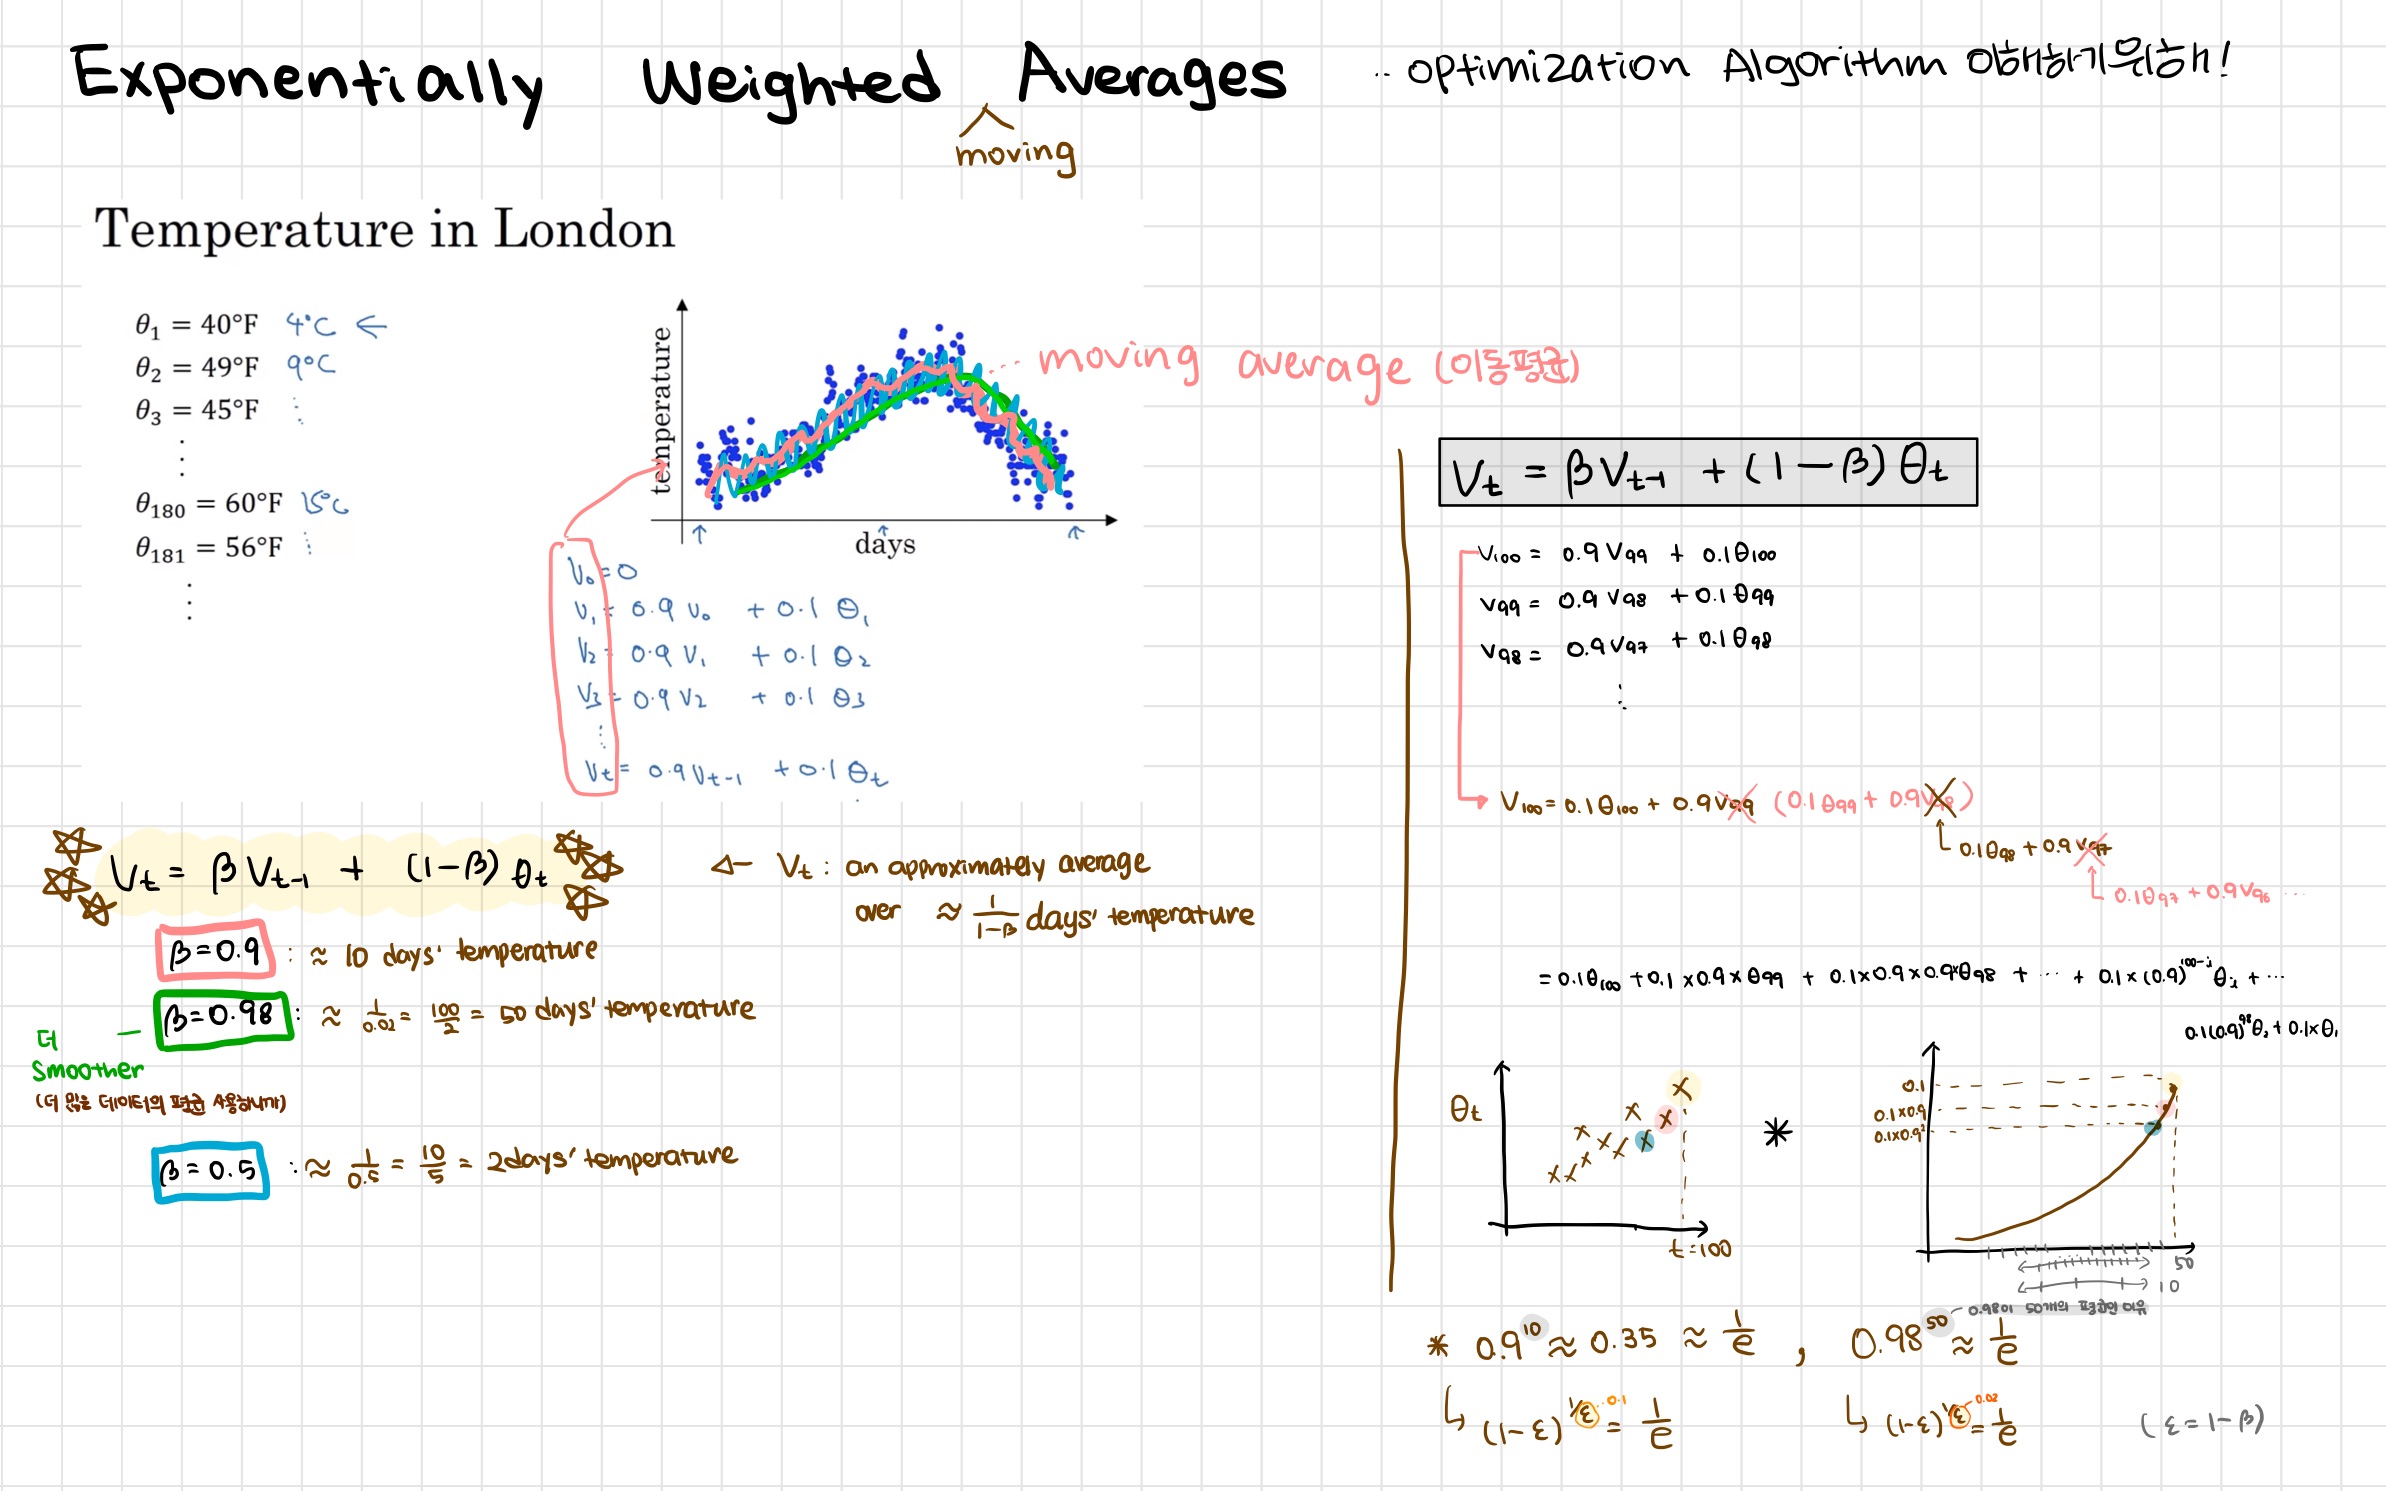 Exponentially Weighted Averages ·· optimization Algorithm 이해하기위해!
moving
Temperature in London
θ₁ = 40°F 4°C ←
θ₂ = 49°F 9°C
θ₃ = 45°F ⋮
⋮
θ₁₈₀ = 60°F 15°C
θ₁₈₁ = 56°F ⋮
⋮
temperature
days
moving average (이동평균)
V₀ = 0
V₁ = 0.9 V₀ + 0.1 θ₁
V₂ = 0.9 V₁ + 0.1 θ₂
V₃ = 0.9 V₂ + 0.1 θ₃
⋮
Vt = 0.9 Vt-1 + 0.1 θt
Vt = βVt-1 + (1-β) θt
← Vt : an approximately average
over ≈ 1/(1-β) days' temperature
β=0.9 : ≈ 10 days' temperature
β=0.98 : ≈ 1/0.02 = 100/2 = 50 days' temperature
더 —
Smoother
(더 많은 데이터의 평균 사용하니까)
β=0.5 : ≈ 1/0.5 = 10/5 = 2days' temperature
Vt = βVt-1 + (1-β)θt
V₁₀₀ = 0.9 V₉₉ + 0.1θ₁₀₀
V₉₉ = 0.9 V₉₈ + 0.1θ₉₉
V₉₈ = 0.9V₉₇ + 0.1θ₉₈
⋮
V₁₀₀ = 0.1θ₁₀₀ + 0.9V₉₉ (0.1θ₉₉ + 0.9V₉₈)
0.1θ₉₈ + 0.9V₉₇
0.1θ₉₇ + 0.9V₉₆ ···
= 0.1θ₁₀₀ + 0.1×0.9×θ₉₉ + 0.1×0.9×0.9×θ₉₈ + ··· + 0.1×(0.9)^(100-i) θi + ···
0.1(0.9)⁹⁸θ₂ + 0.1×θ₁
θt
t=100
*
0.1
0.1×0.9
0.1×0.9²
50
10
0.98이 50개의 평균인 이유
* 0.9¹⁰ ≈ 0.35 ≈ 1/e , 0.98⁵⁰ ≈ 1/e
↳ (1-ε)^(1/ε) = 1/e ··0.1
↳ (1-ε)^(1/ε) = 1/e ··0.02 (ε=1-β)